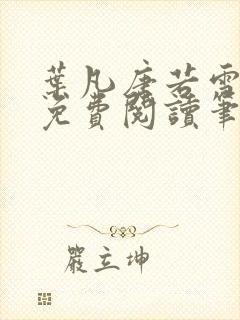 葉凡唐若雪
免費閱讀筆
嚴立坤